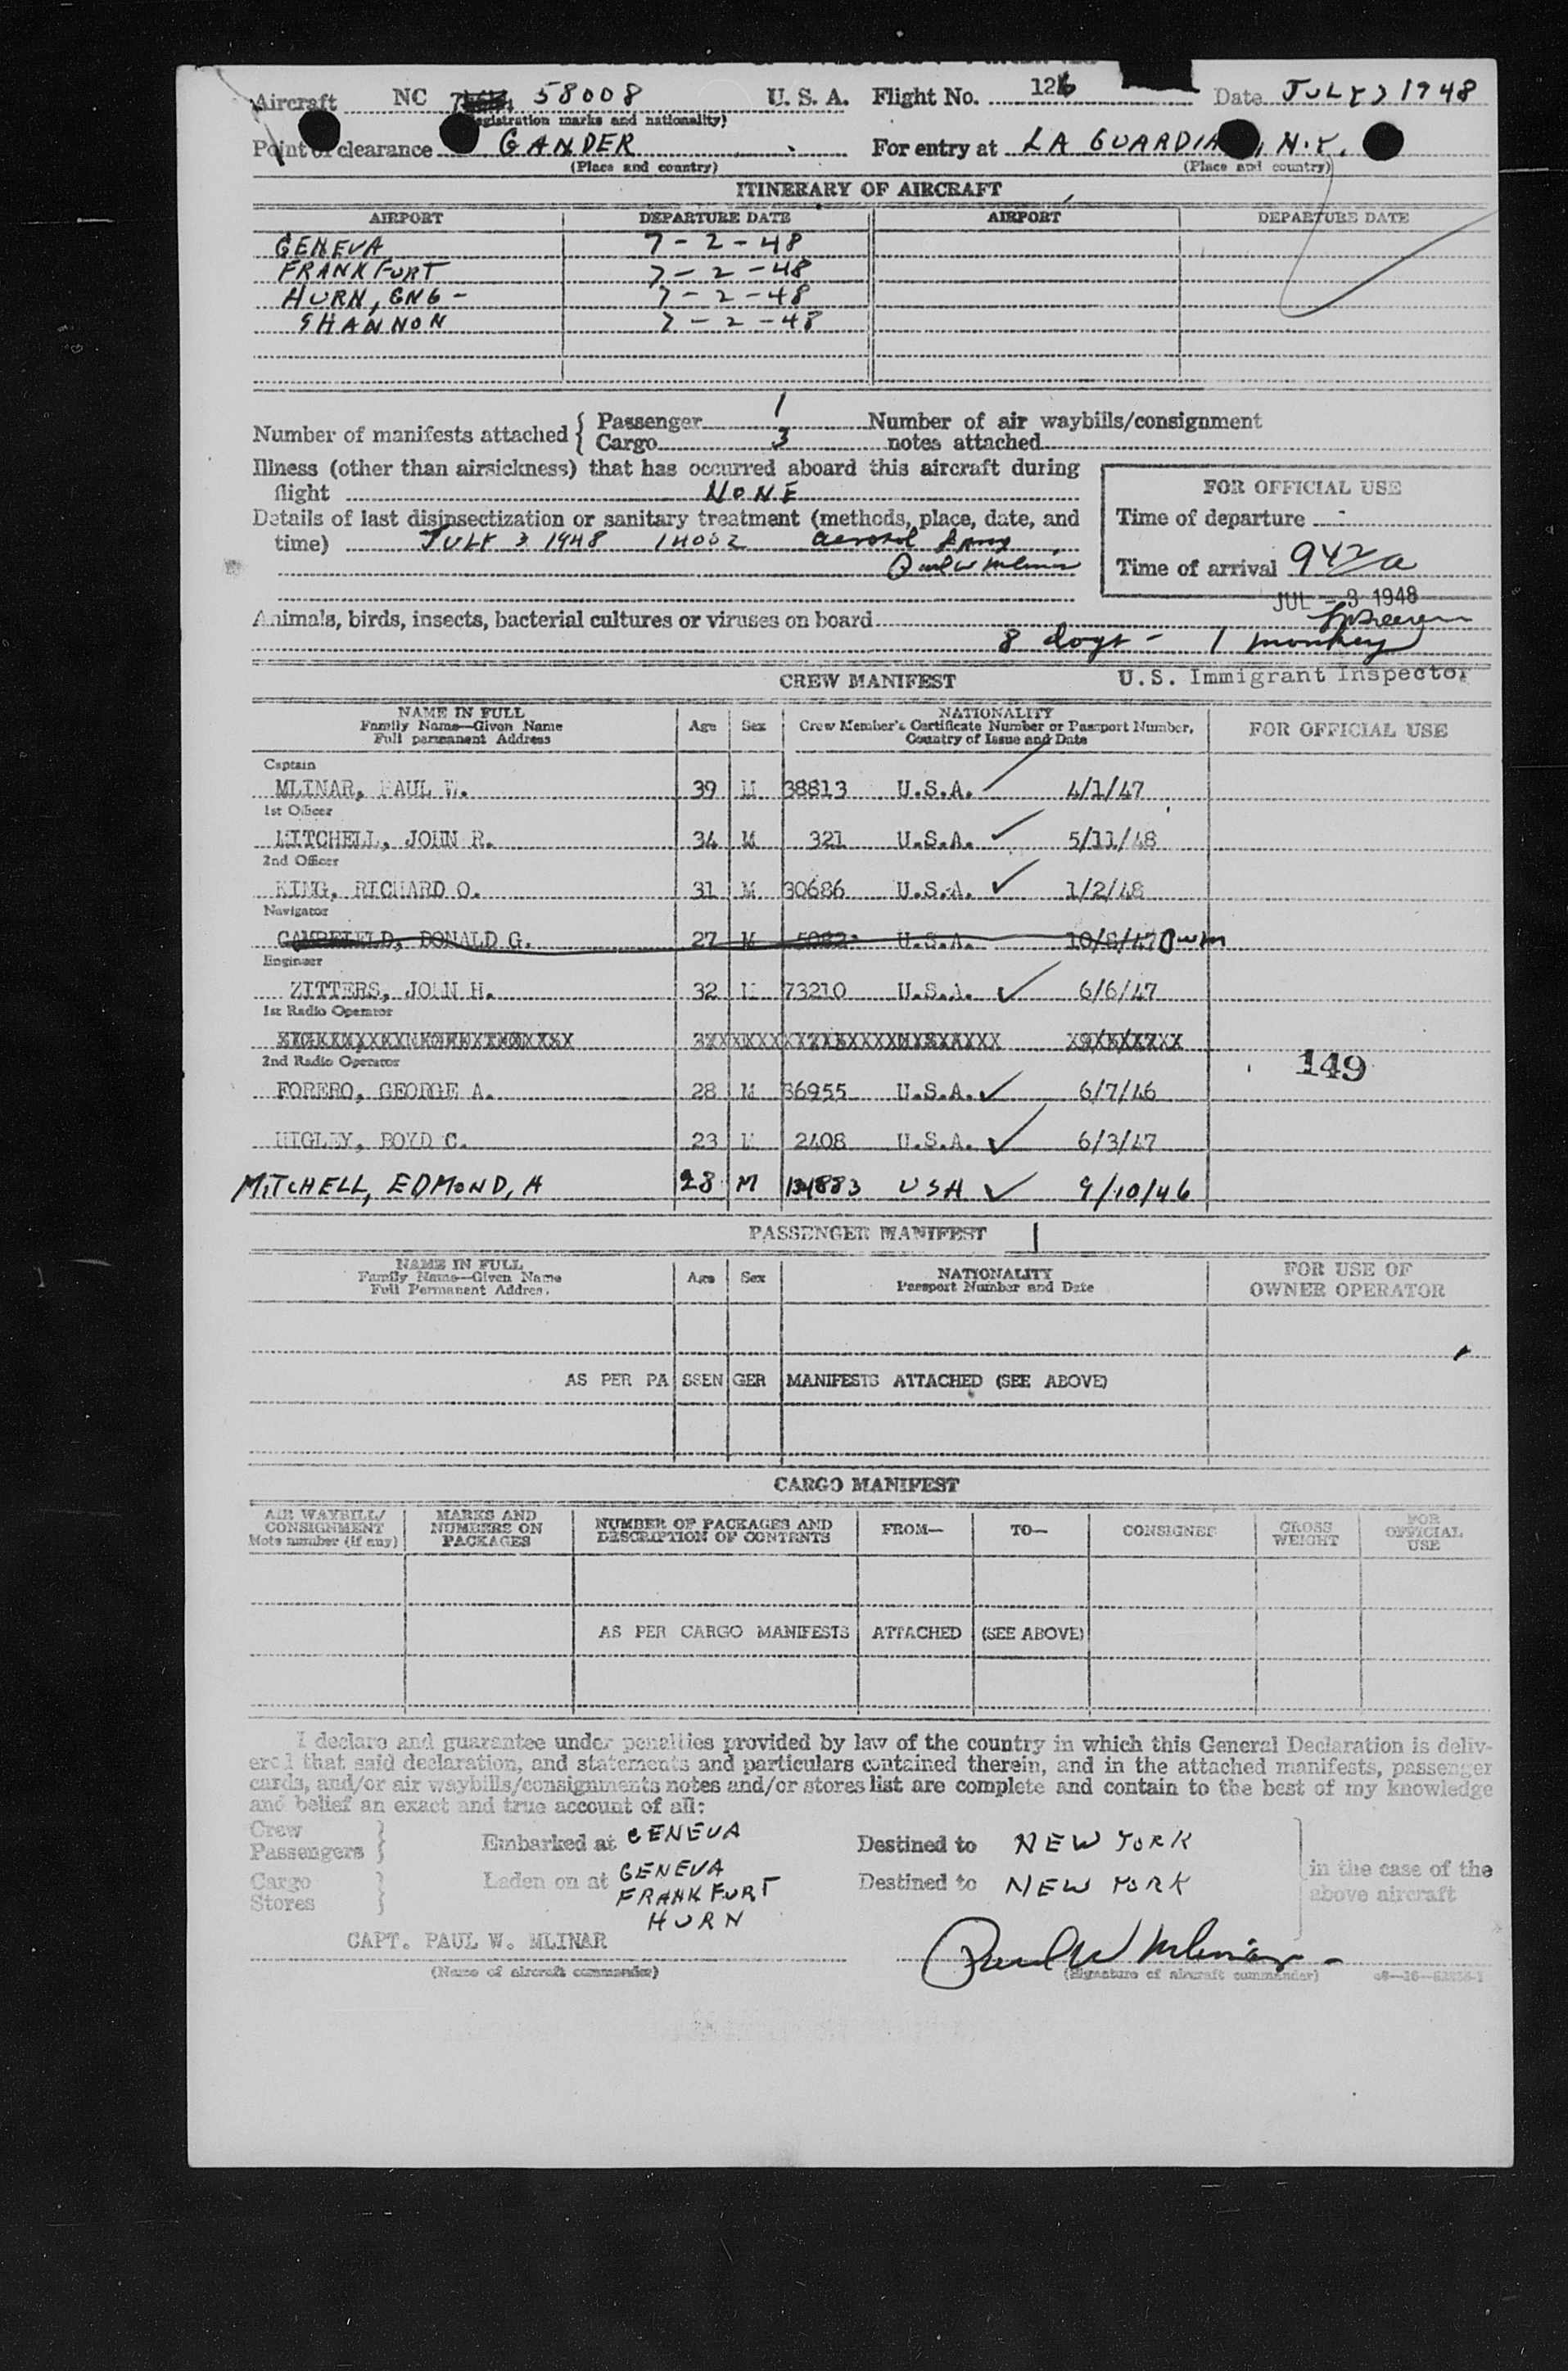 Aircraft NC 58008 U. S. A. Flight No. 126 Date JULY 3 1948
(Registration marks and nationality)
Point of clearance GANDER For entry at LA GUARDIA, N.Y.
(Place and country) (Place and country)
ITINERARY OF AIRCRAFT
AIRPORT DEPARTURE DATE AIRPORT DEPARTURE DATE
GENEVA 7-2-48
FRANKFURT 7-2-48
HURN, ENG- 7-2-48
SHANNON 7-2-48
Number of manifests attached { Passenger 1 Number of air waybills/consignment
Cargo 3 notes attached
Illness (other than airsickness) that has occurred aboard this aircraft during
flight NONE
FOR OFFICIAL USE
Details of last disinsectization or sanitary treatment (methods, place, date, and
time) JULY 3 1948 1400Z aerosol spray
Paul W Mlinar
Time of departure
Time of arrival 942 a
JUL - 3 1948
Animals, birds, insects, bacterial cultures or viruses on board
8 dogs - 1 monkey
U.S. Immigrant Inspector
CREW MANIFEST
NAME IN FULL
Family Name—Given Name
Full permanent Address
Age Sex
NATIONALITY
Crew Member's Certificate Number or Passport Number,
Country of Issue and Date
FOR OFFICIAL USE
Captain
MLINAR, PAUL W. 39 M 38813 U.S.A. 4/1/47
1st Officer
MITCHELL, JOHN R. 34 M 321 U.S.A. 5/11/48
2nd Officer
KING, RICHARD O. 31 M 30686 U.S.A. 1/2/48
Navigator
DONALD G. 27 M U.S.A. 10/8/47 PWM
Engineer
ZITTERS, JOHN H. 32 M 73210 U.S.A. 6/6/47
1st Radio Operator
149
2nd Radio Operator
FORERO, GEORGE A. 28 M 36955 U.S.A. 6/7/46
HIGLEY, BOYD C. 23 M 2408 U.S.A. 6/3/47
MITCHELL, EDMOND, H 28 M 134883 USA 9/10/46
PASSENGER MANIFEST 1
NAME IN FULL
Family Name—Given Name
Full Permanent Address
Age Sex
NATIONALITY
Passport Number and Date
FOR USE OF
OWNER OPERATOR
AS PER PASSENGER MANIFESTS ATTACHED (SEE ABOVE)
CARGO MANIFEST
AIR WAYBILL/
CONSIGNMENT
Note number (if any)
MARKS AND
NUMBERS ON
PACKAGES
NUMBER OF PACKAGES AND
DESCRIPTION OF CONTENTS
FROM— TO— CONSIGNEE
GROSS
WEIGHT
FOR
OFFICIAL
USE
AS PER CARGO MANIFESTS ATTACHED (SEE ABOVE)
I declare and guarantee under penalties provided by law of the country in which this General Declaration is deliv-
ered that said declaration, and statements and particulars contained therein, and in the attached manifests, passenger
cards, and/or air waybills/consignments notes and/or stores list are complete and contain to the best of my knowledge
and belief an exact and true account of all:
Crew
Passengers } Embarked at GENEVA Destined to NEW YORK
Cargo
Stores } Laden on at GENEVA Destined to NEW YORK
FRANKFURT
HURN
in the case of the
above aircraft
CAPT. PAUL W. MLINAR Paul W Mlinar
(Name of aircraft commander) (Signature of aircraft commander)